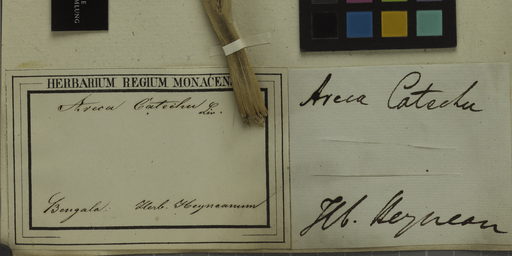 MLUNG
HERBARIUM REGIUM MONACEN
Areca Catechu L.
Bengala. Herb. Heyneanum
Areca Catechu
Hb. Heynean